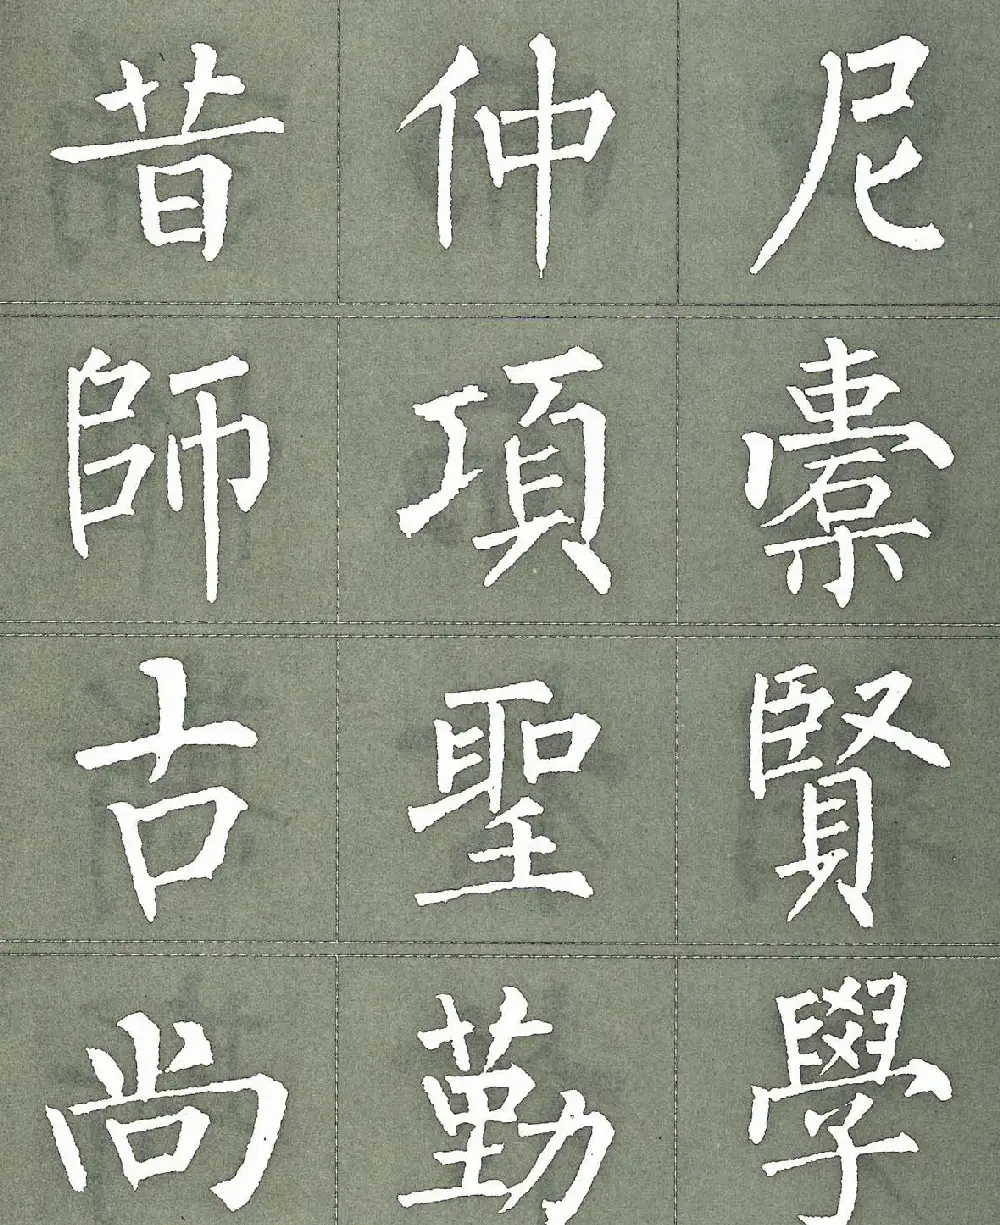 昔仲尼
師項橐
古聖賢
尚勤學